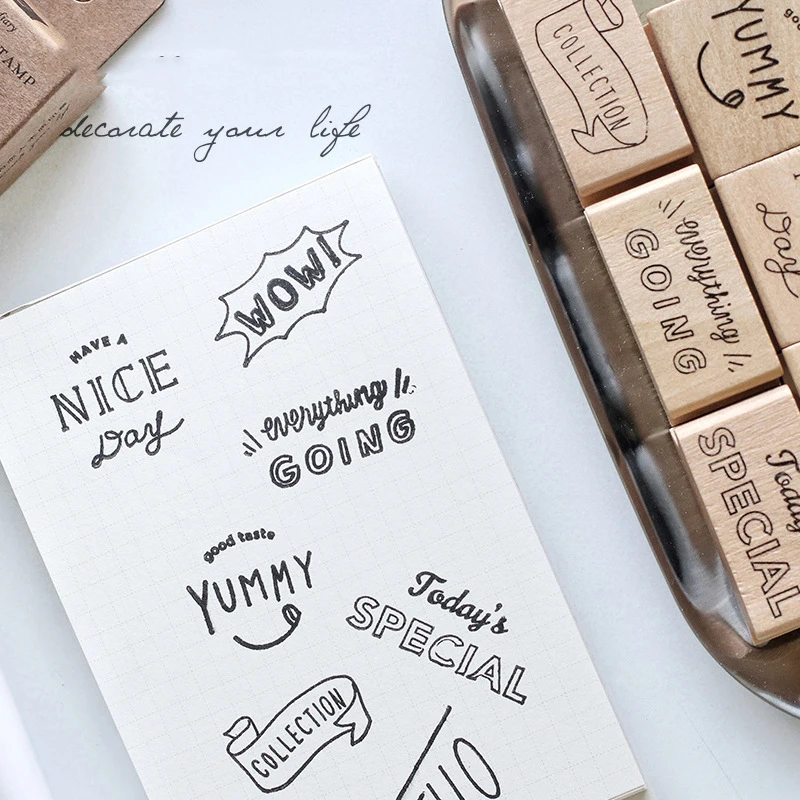 diary
STAMP
decorate your life
WOW!
HAVE A
NICE
Day
everything
GOING
good taste
YUMMY
Today's
SPECIAL
COLLECTION
COLLECTION
YUMMY
everything
GOING
Day
Today
SPECIAL